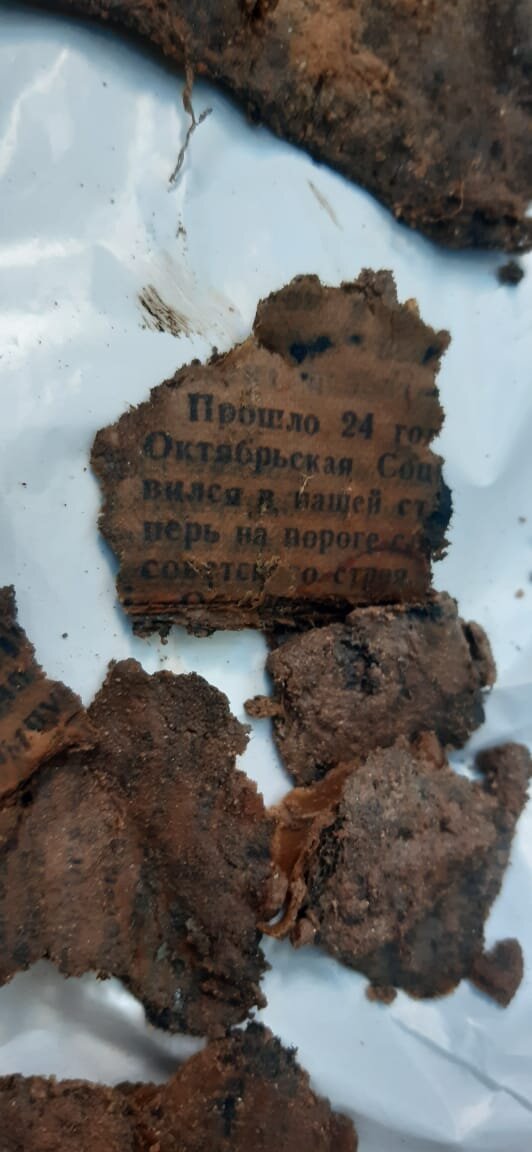 Прошло 24 го
Октябрьская Соц
вился в нашей ст
перь на пороге
советск го строя.